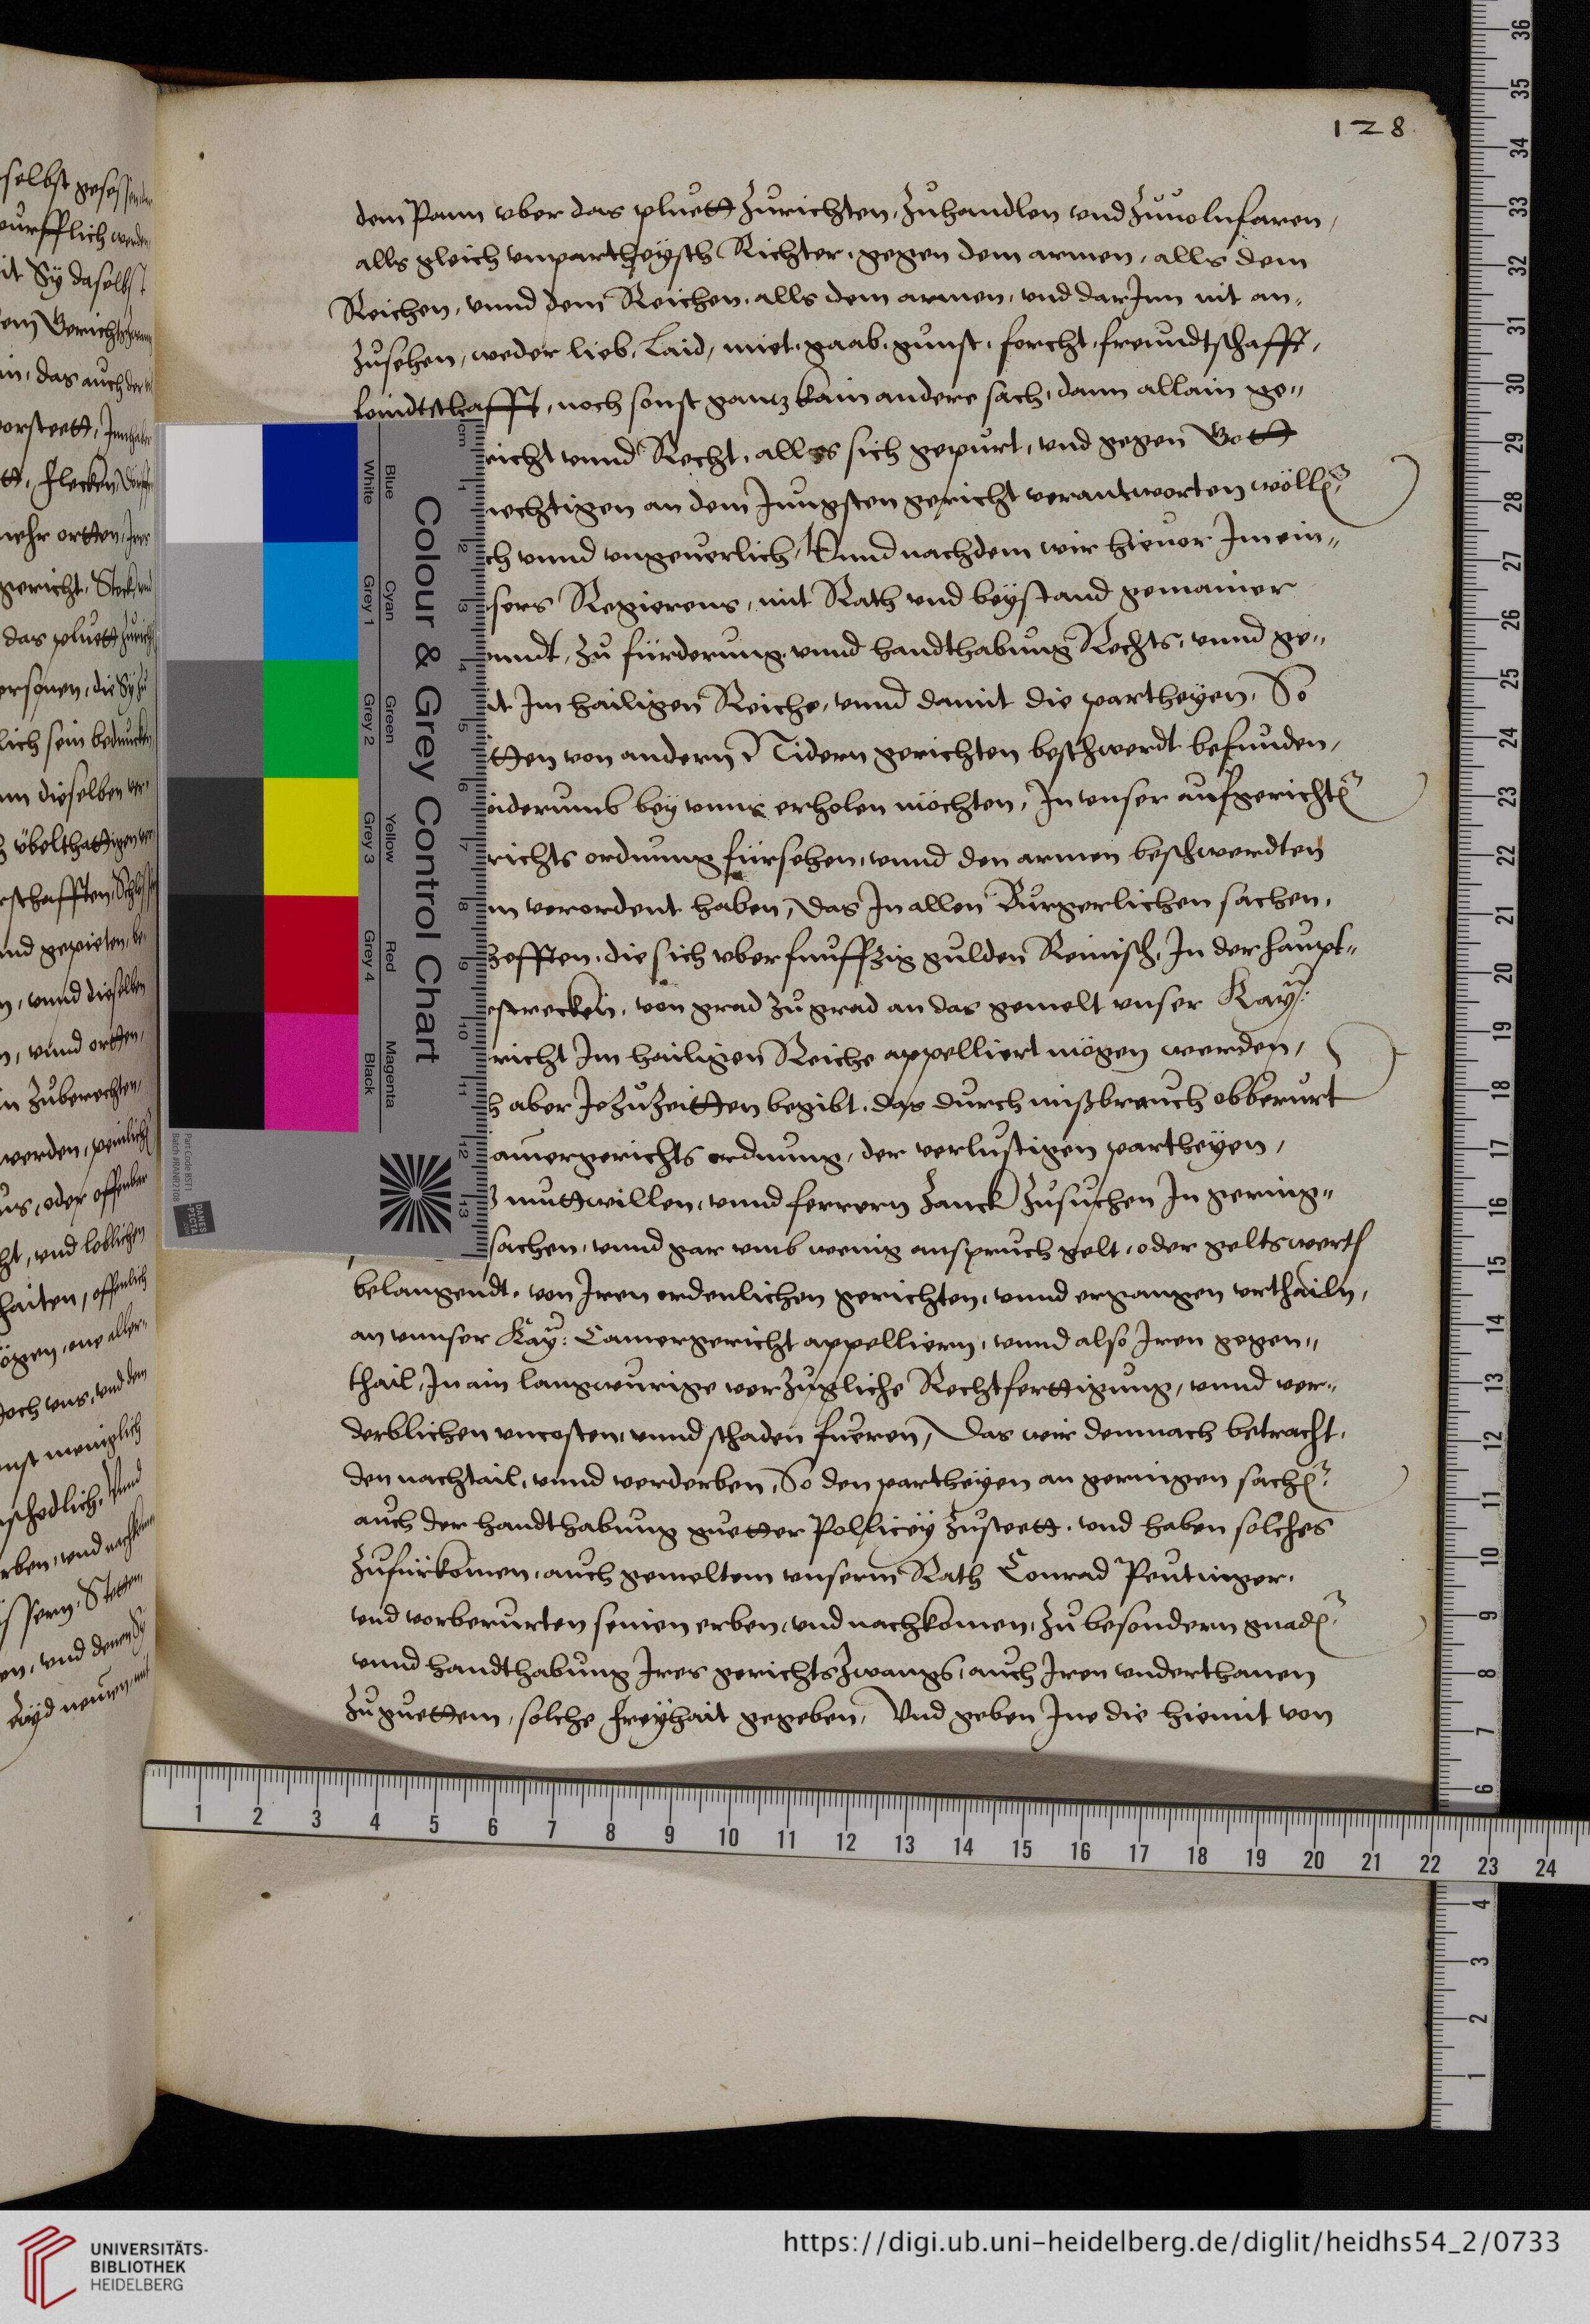 128
dem Pann vber das pluett Zurichten, Zuhandlen vnd Zuuolnfaren,
alls gleich vnpartheysch Richter, gegen dem armen, alls dem
Reichen, vnnd dem Reichen, alls dem armen, vnd darInn nit an„
Zusehen, weder lieb, Laid, miet, gaab, gunst, forcht, freundtschafft,
feindtschafft, noch sonst gantz kain andere sach, dann allain ge„
richt vnnd Recht, alls es sich gepurt, vnd gegen Gott
mechtigen an dem Jungsten gericht verantworten wölle
ch vnnd vngeuerlich, Vnnd nachdem wir hieuor Im ein„
sers Regierens, mit Rath vnd beystand gemainer
enndt, Zu fürderung vnnd handthabung Rechts, vnnd ge„
it Im hailigen Reiche, vnnd damit die partheyen, So
tten von andern Nidern gerichten beschwerdt befunden,
widerumb bey vnns erholen möchten, In vnser aufgerichte
richts ordnung fürsehen, vnnd den armen beschwerdten
n verordent haben, Das In allen Burgerlichen sachen,
hefften, die sich vber funffzig gulden Reinisch, In der haupt„
estrecken, von grad Zu grad an das gemelt vnser Kay:
richt Im hailigen Reiche appelliert mögen werden,
h aber Je Zu Zeitten begibt, das durch mißbrauch obberurt
amergerichts ordnung, der verlustigen partheyen,
muttwillen, vnnd ferrern Zanck Zusuchen In gering„
sachen, vnnd gar vmb wenig anspruch gelt, oder geltswert
belangendt, von Iren ordenlichen gerichten, vnnd ergangen vrthailn,
an vnnser Kay: Camergericht appelliern, vnnd also Iren gegen„
thail, In ain langwurige verzugliche Rechtfertigung, vnnd ver„
derblichen vncosten, vnnd schaden fueren, Das wir demnach betracht,
den nachtail, vnnd verderben, So den partheyen an geringen sache
auch der handthabung guetter Pollicey Zusteett, vnd haben solches
Zufürkomen, auch gemeltem vnserm Rath Conrad Peutinger,
vnd vorberurten seinen erben, vnd nachkomen, Zu besondern gnade
vnnd handthabung Ires gerichtsZwangs, auch Iren vnderthanen
Zu guettem, solche freyhait gegeben, Vnd geben Ine die hiemit von
Colour & Grey Control Chart
Blue
Cyan
Green
Yellow
Red
Magenta
White
Grey 1
Grey 2
Grey 3
Grey 4
Black
cm 1 2 3 4 5 6 7 8 9 10 11 12 13
Part Code BST1
Batch #RANR7108
DANES
-PICTA
.COM
selbst gesessen
it Sy daselbst
in, das auch der
flecken
gericht, Stock, vnd
das pluett Zuricht
ersonen, die Sy Zu
lich sein beduncken
nn dieselben ver„
übelthattigen
nd gepieten, be„
n, vnnd dieselben
n, vnnd ortten,
in Zuberechten,
werden, peinlich
us, oder offenbar
ht, vnd loblichen
haiten, offenlich
ögen, one aller„
doch vns, vnd dem
nst meniglich
schedlich, Vnnd
rben, vnd nachkomen
issern, Stetten,
en, vnd denen Sy
Ayd nemen, mit
1 2 3 4 5 6 7 8 9 10 11 12 13 14 15 16 17 18 19 20 21 22 23 24
36 35 34 33 32 31 30 29 28 27 26 25 24 23 22 21 20 19 18 17 16 15 14 13 12 11 10 9 8 7 6 4 3 2 1
UNIVERSITÄTS-
BIBLIOTHEK
HEIDELBERG
https://digi.ub.uni-heidelberg.de/diglit/heidhs54_2/0733